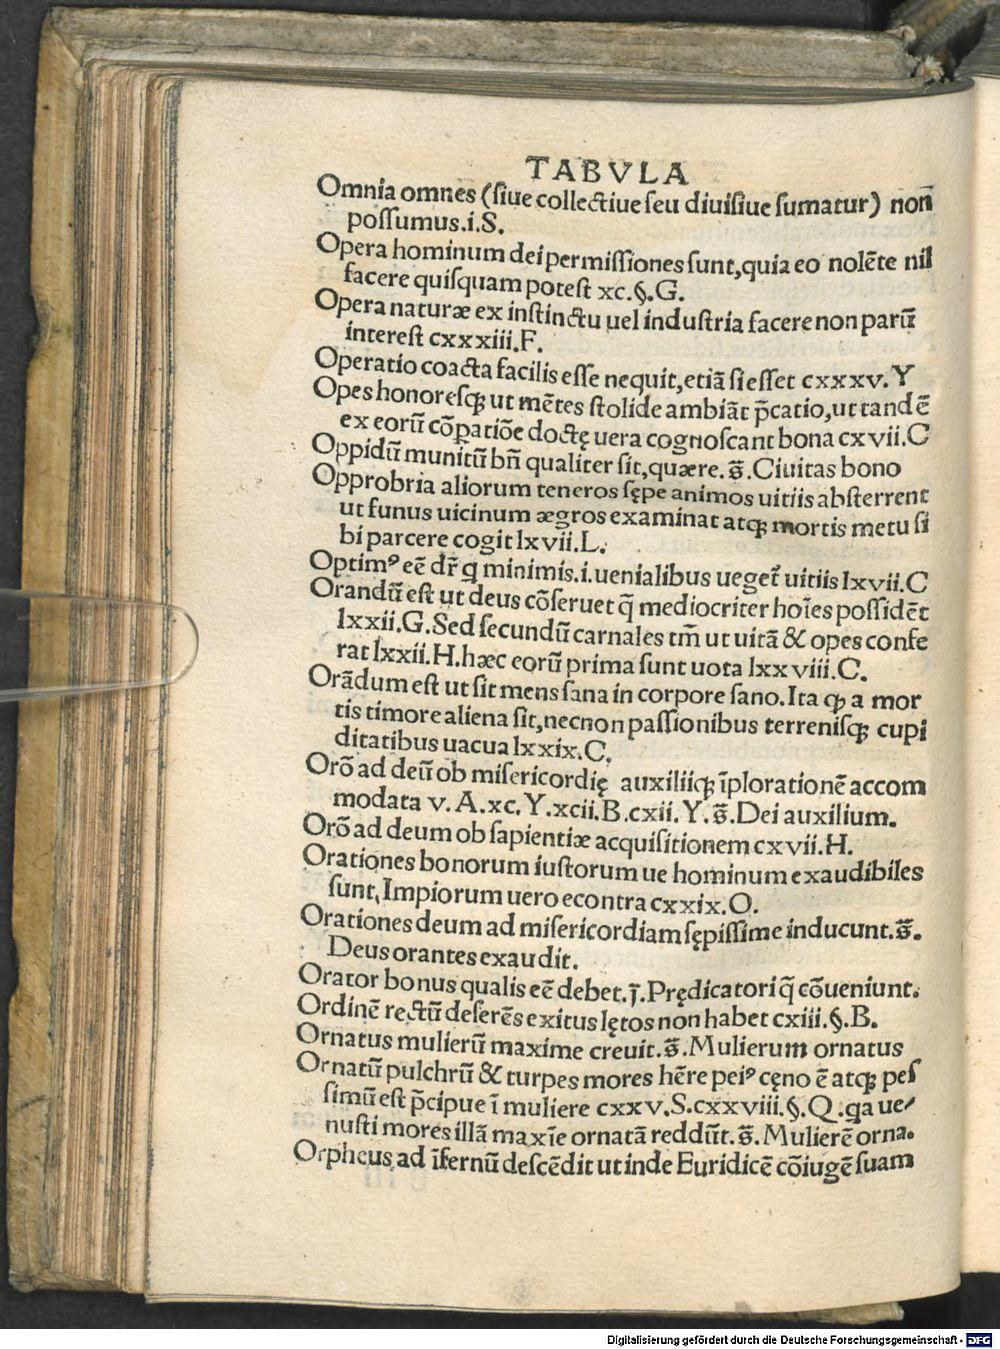 TABVLA
Omnia omnes (siue collectiue seu diuisiue sumatur) non̄
possumus.i.S.
Opera hominum dei permissiones sunt,quia eo nolēte nil
facere quisquam potest xc.§.G.
Opera naturæ ex instinctu uel industria facere non parū
interest cxxxiii.F.
Operatio coacta facilis esse nequit,etiā si esset cxxxv.Y
Opes honoresqꝫ ut mētes stolide ambiāt p̄catio,ut tandē
ex eorū cōꝑatiōe doctę uera cognoscant bona cxvii.C
Oppidū munitū bn̄ qualiter sit,quære.s̄.Ciuitas bono
Opprobria aliorum teneros sępe animos uitiis absterrent
ut funus uicinum ægros examinat atqꝫ mortis metu si
bi parcere cogit lxvii.L.
Optimꝰ eē dr̄ q minimis.i.uenialibus ueget̄ uitiis lxvii.C
Orandū est ut deus cōseruet q̄ mediocriter hoīes possidēt
lxxii.G.Sed secundū carnales tm̄ ut uitā & opes confe
rat lxxii.H.hæc eorū prima sunt uota lxxviii.C.
Orādum est ut sit mens sana in corpore sano.Ita ꝙ a mor
tis timore aliena sit,necnon passionibus terrenisqꝫ cupi
ditatibus uacua lxxix.C.
Orō ad deū ob misericordię auxiliiqꝫ īplorationē accom
modata v.A.xc.Y.xcii.B.cxii.Y.s̄.Dei auxilium.
Orō ad deum ob sapientiæ acquisitionem cxvii.H.
Orationes bonorum iustorum ue hominum exaudibiles
sunt,Impiorum uero econtra cxxix.O.
Orationes deum ad misericordiam sępissime inducunt.s̄.
Deus orantes exaudit.
Orator bonus qualis eē debet.j̄.Prędicatori q̄ cōueniunt.
Ordinē rectū deserēs exitus lętos non habet cxiii.§.B.
Ornatus mulierū maxime creuit.s̄.Mulierum ornatus
Ornatū pulchrū & turpes mores hēre peiꝰ cęno ē atqꝫ pes
simū est p̄cipue ī muliere cxxv.S.cxxviii.§.Q.qa ue⸗
nusti mores illā maxīe ornatā reddūt.s̄.Mulierē orna.
Orpheus ad īfernū descēdit ut inde Euridicē cōiugē suam
Digitalisierung gefördert durch die Deutsche Forschungsgemeinschaft - DFG